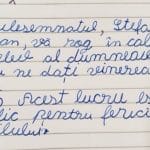 ulesemnatul, Ștefa
an, vă rog în cal
al dumneav
ne dați vinerea
Acest lucru es
lic pentru ferici
lului.